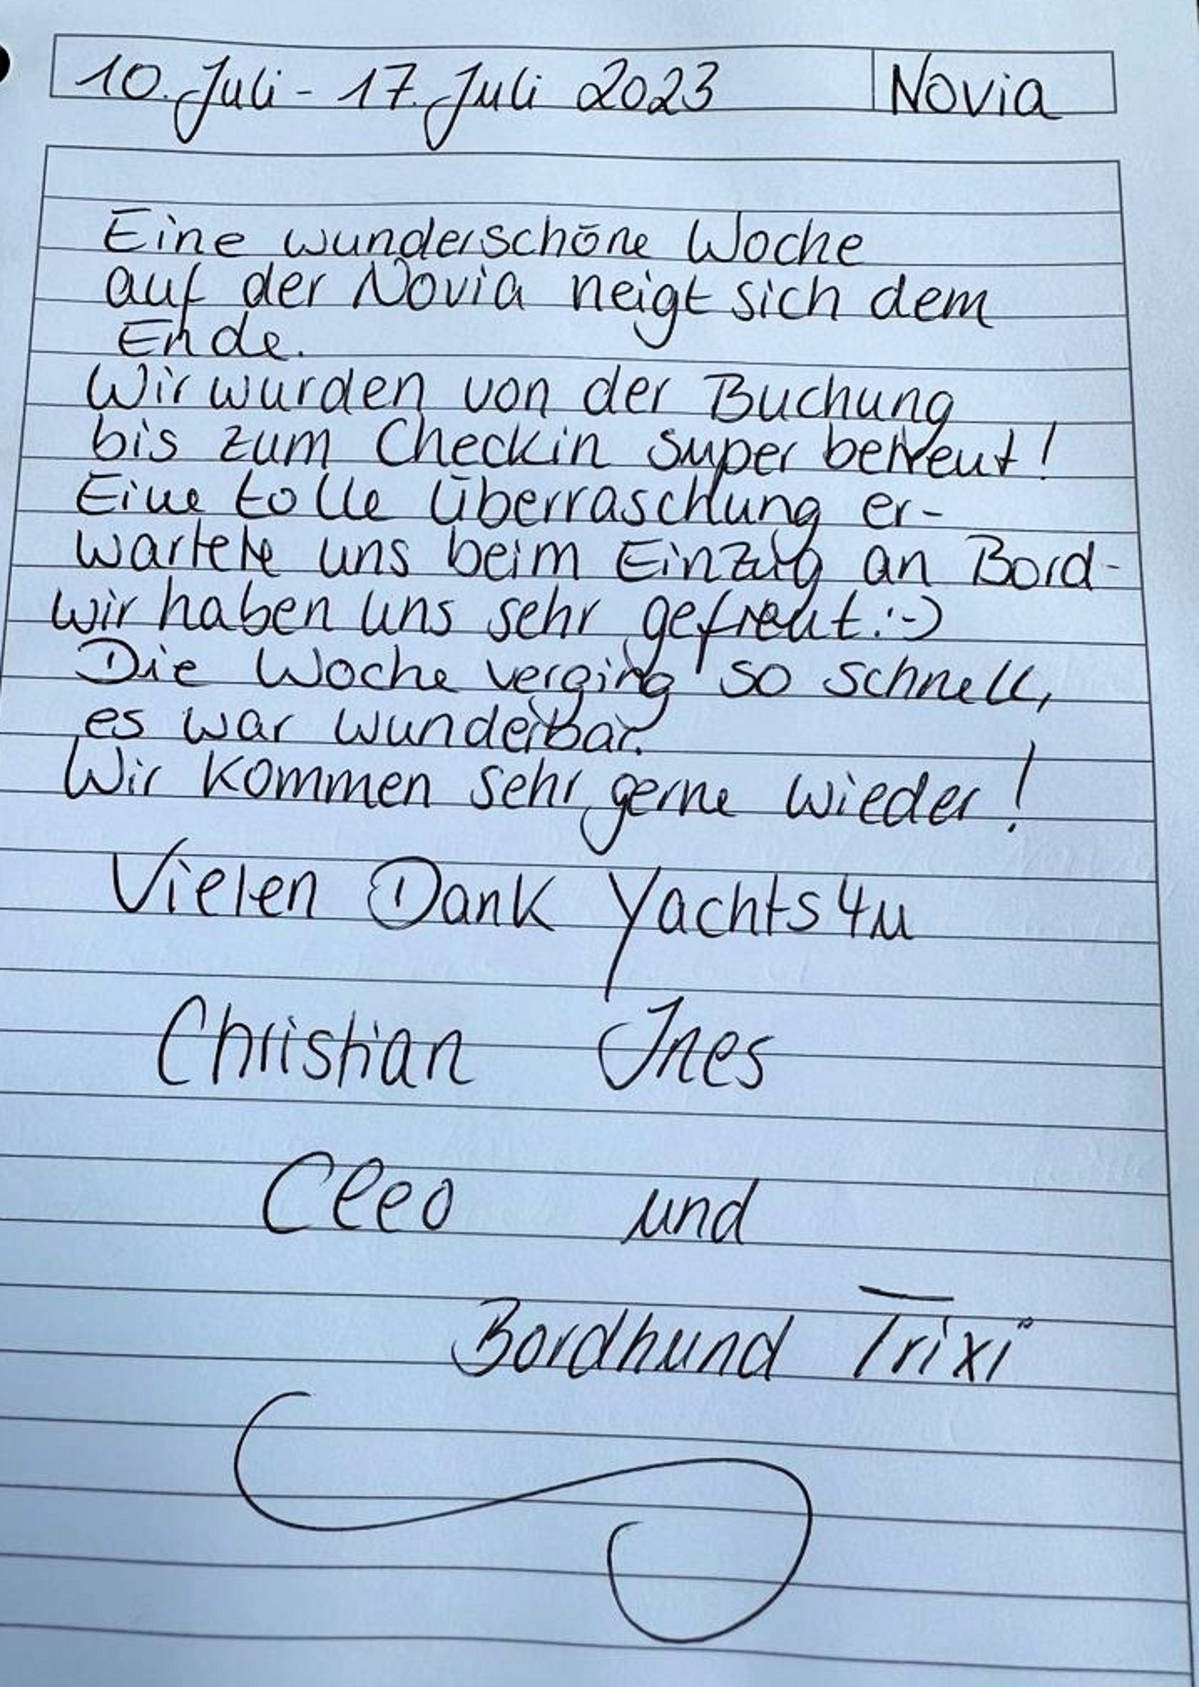 10. Juli - 17. Juli 2023 Novia
Eine wunderschöne Woche
auf der Novia neigt sich dem
Ende.
Wir wurden von der Buchung
bis zum Checkin super betreut!
Eine tolle Überraschung er-
wartete uns beim Einzug an Bord-
wir haben uns sehr gefreut :-)
Die Woche verging so schnell,
es war wunderbar.
Wir kommen sehr gerne wieder!
Vielen Dank Yachts4u
Christian Ines
Cleo und
Bordhund Trixi